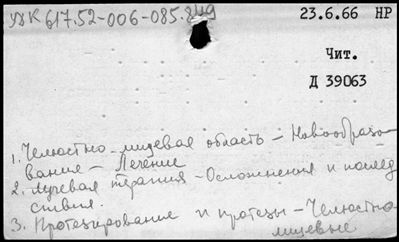 УДК 617.52-006-085.849
23.6.66 НР
Чит.
Д 39063
1. Челюстно-лицевая область – Новообразо-
вание – Лечение
2. Лучевая терапия – Осложнения и послед-
ствия.
3. Протезирование и протезы – Челюстно-
лицевые